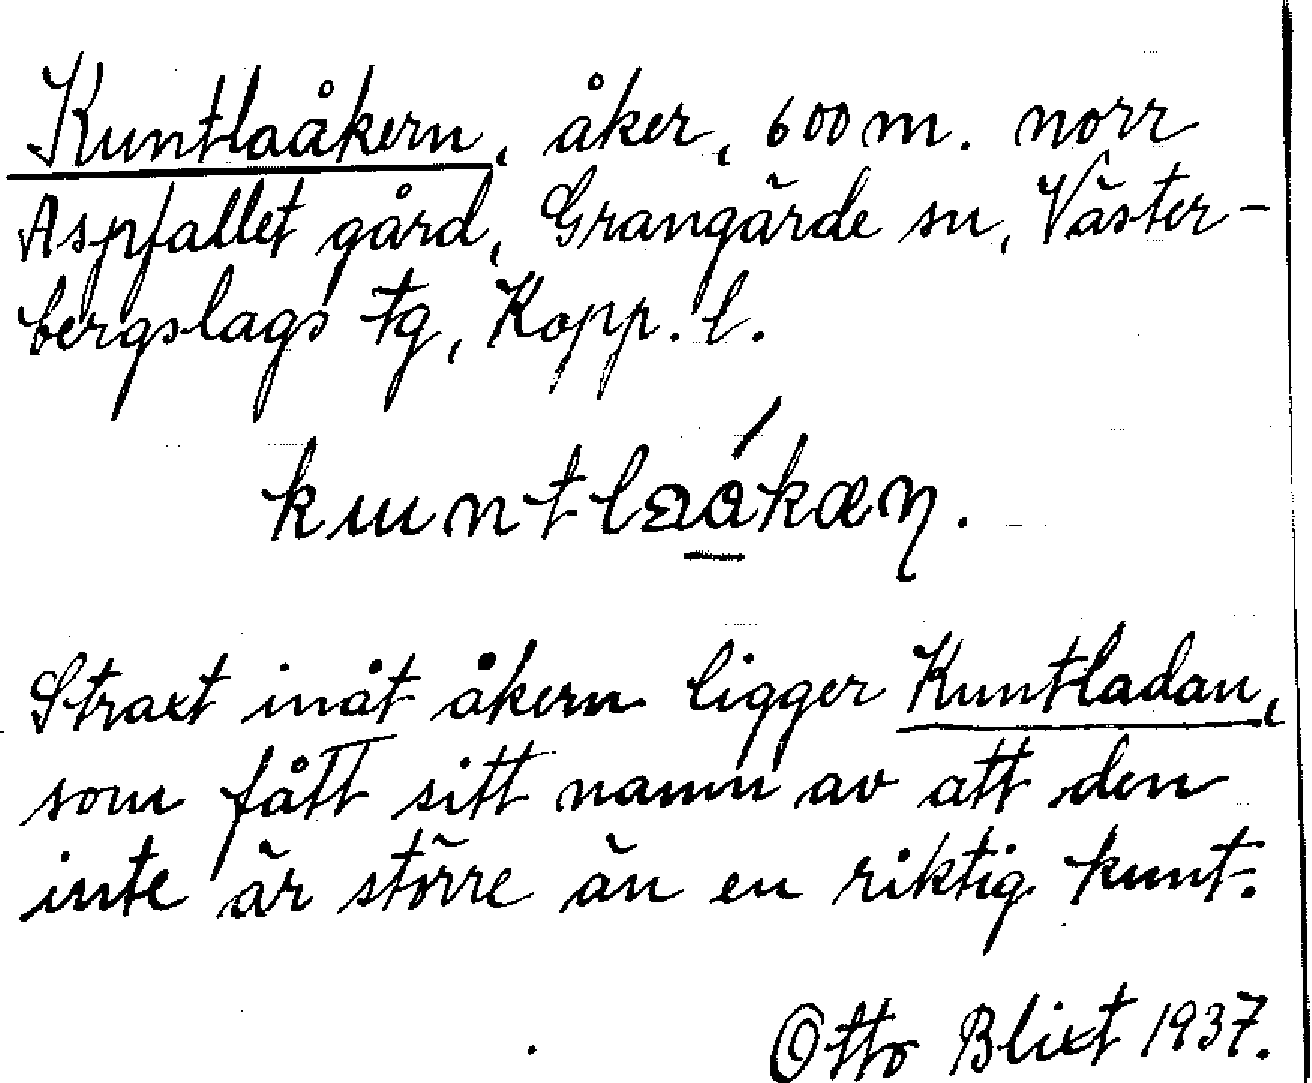 Kuntlaåkern, åker, 600 m. norr
Aspfallet gård, Grangärde sn, Väster-
bergslags tg, Kopp. l.
Straxt inåt åkern ligger Kuntladan,
som fått sitt namn av att den
inte är större än en riktig kunt.
Otto Blixt 1937.